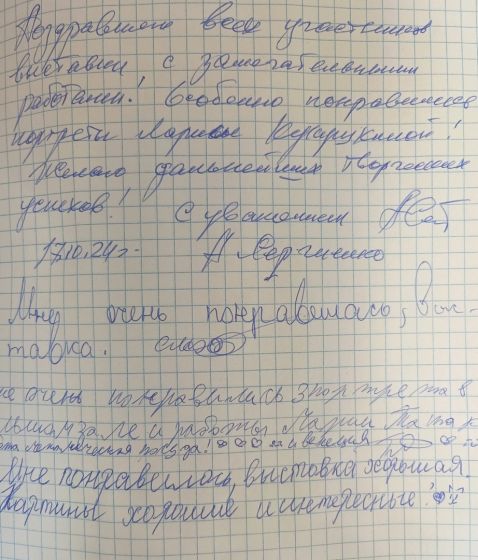 Поздравляю всех участников
выставки с замечательными
работами! Особенно понравились
портреты Ларисы
Желаю дальнейших творческих
успехов! С уважением
17.10.24г.
Мне очень понравилась, выс-
тавка.
не очень понравились 3 портрета в
зале и работы Марии
посуда!
Мне понравилась, выставка хорошая.
Картины хорошие и интересные!